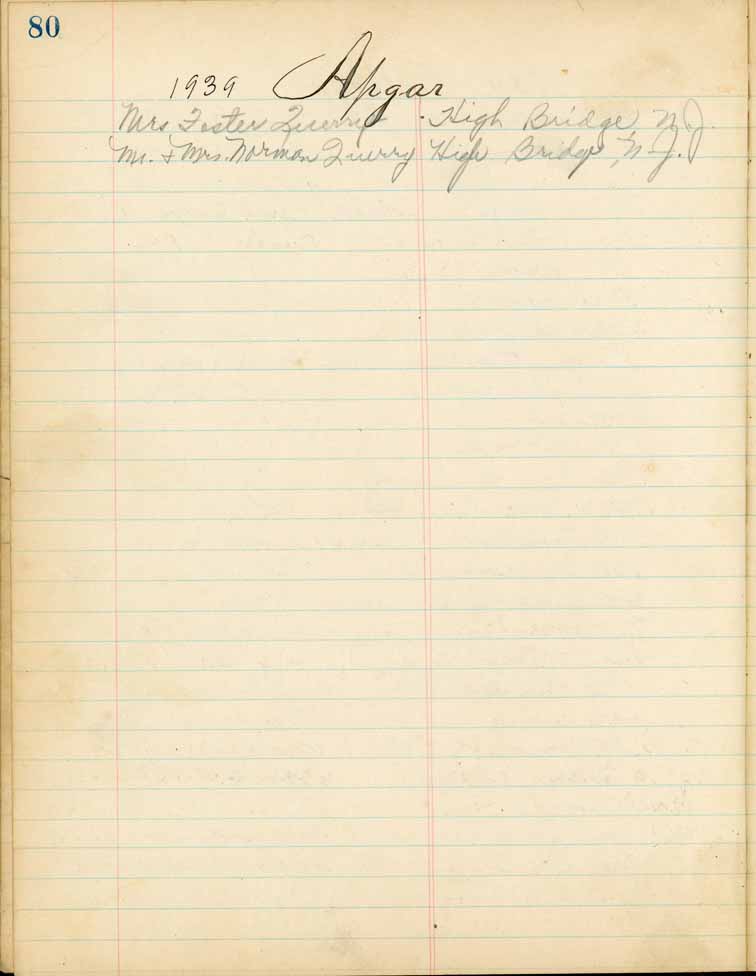 80
1939 Apgar
Mrs Foster Querry High Bridge, N.J.
Mr. & Mrs. Norman Querry High Bridge, N.J.